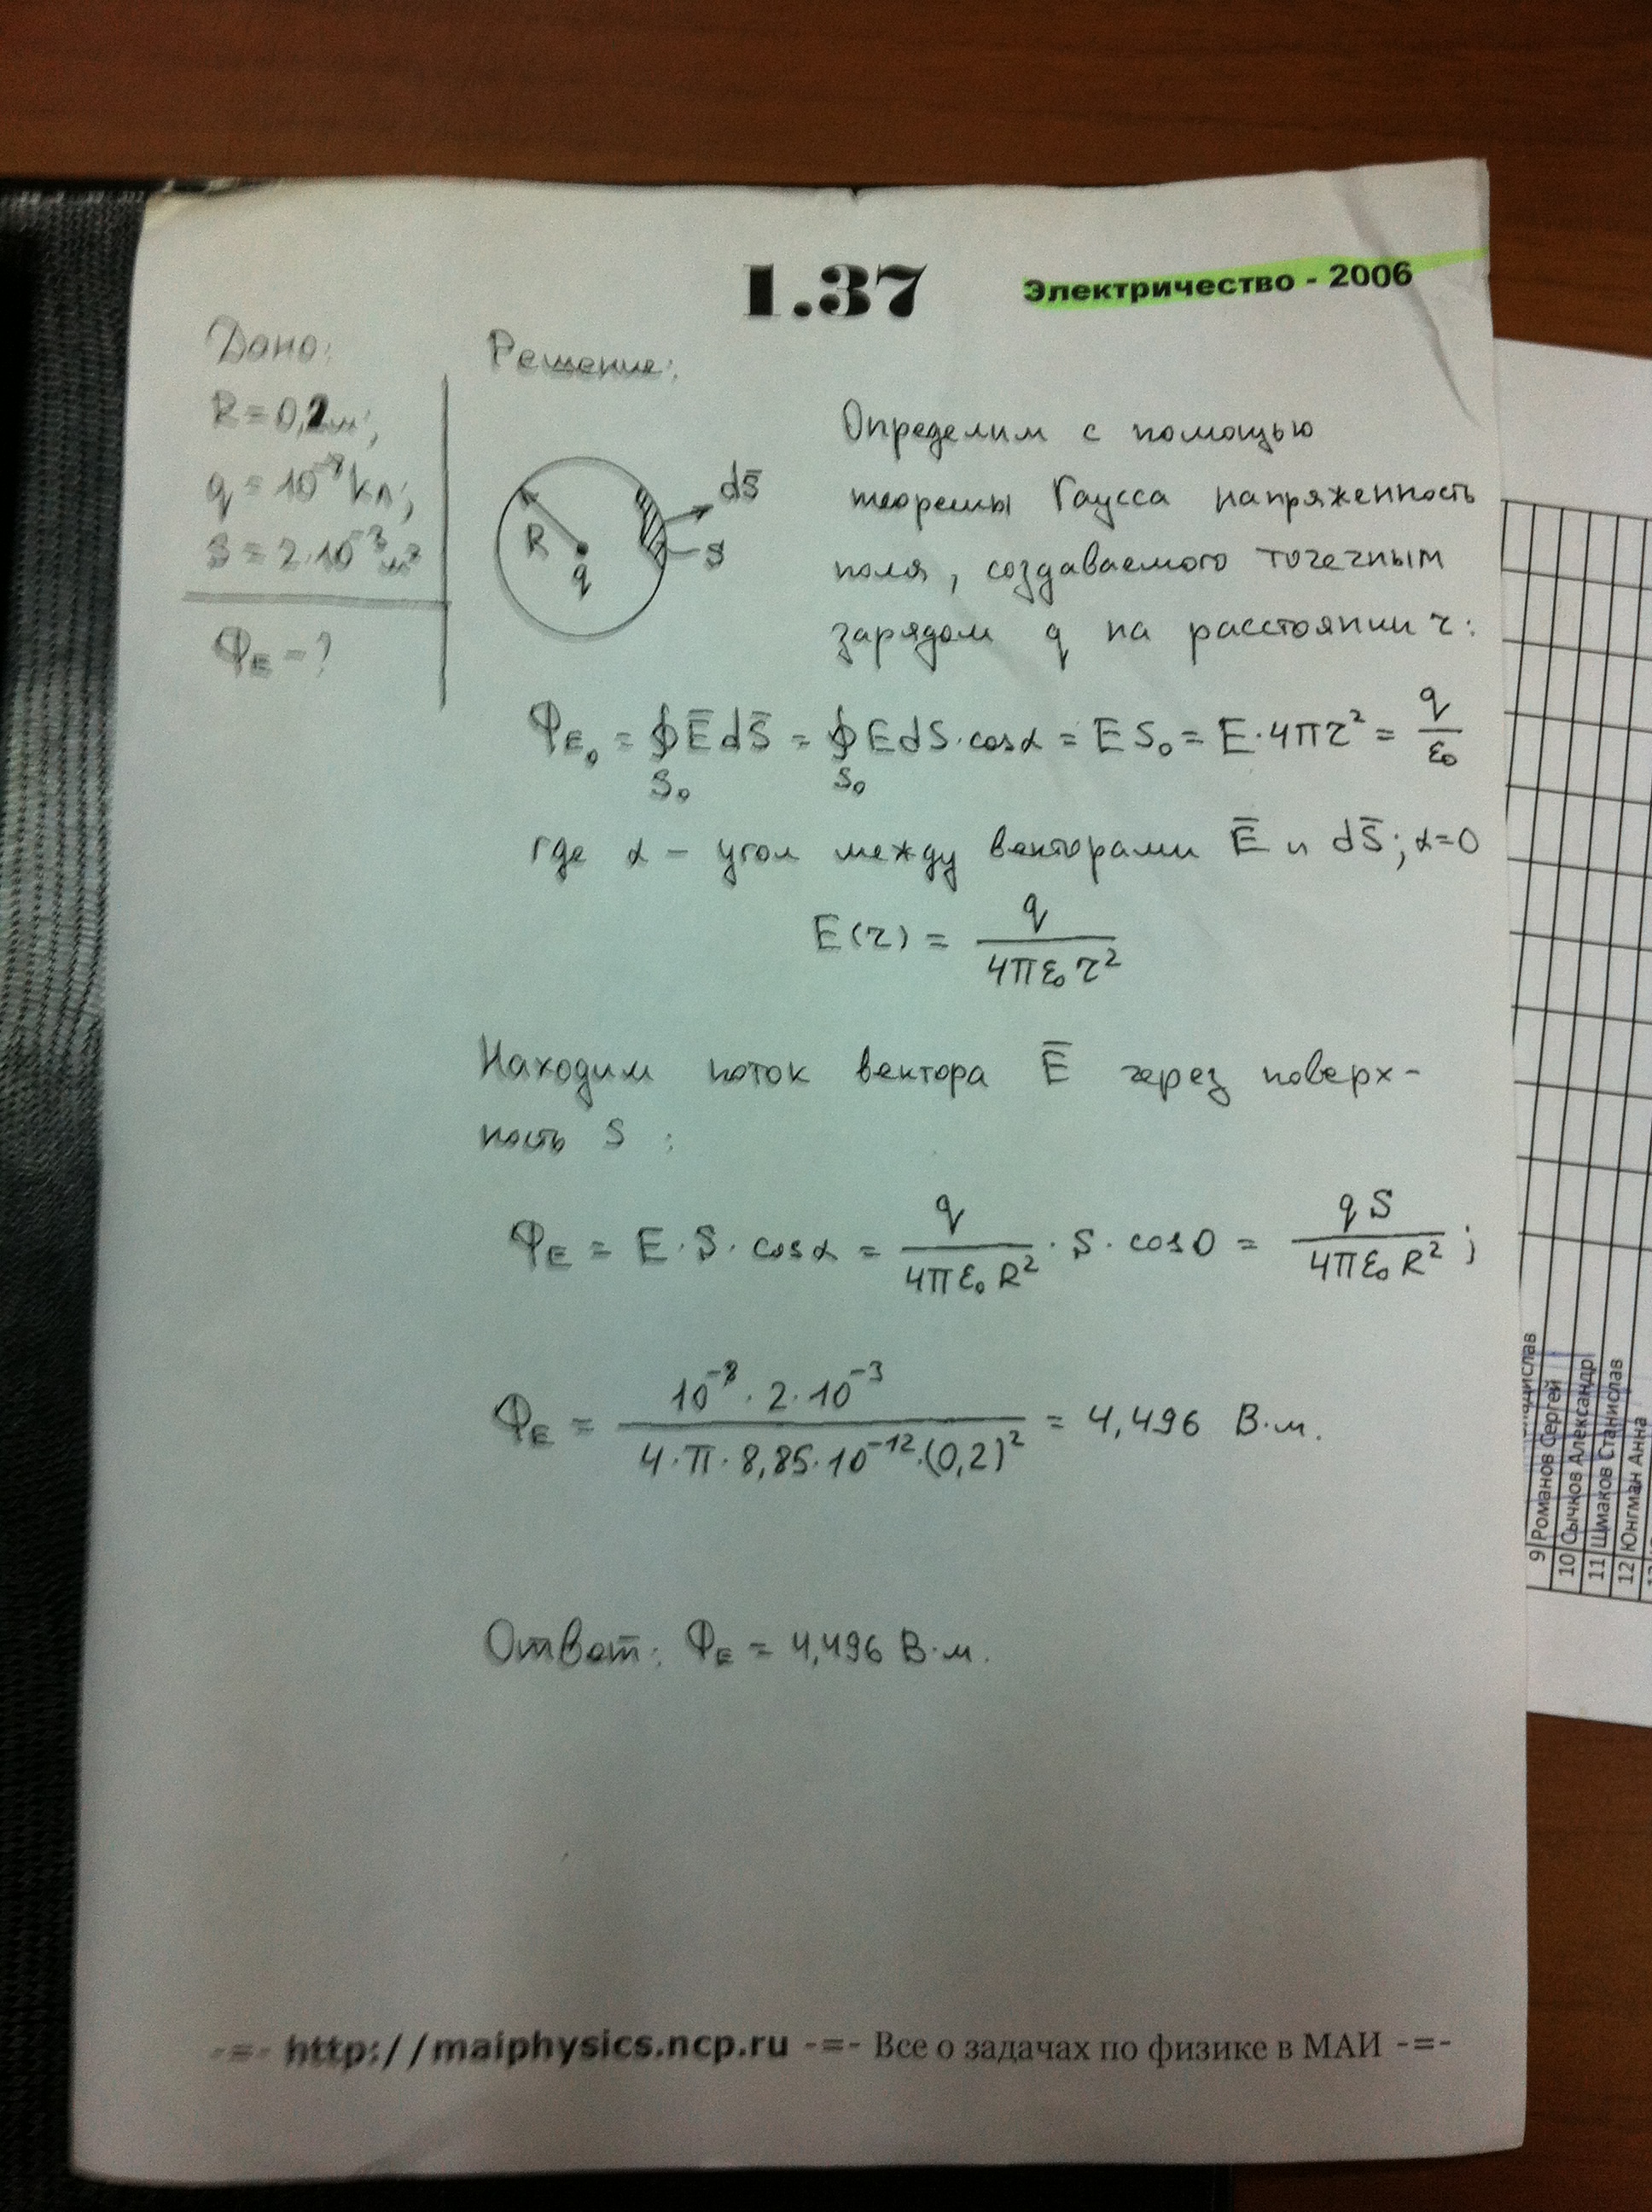 1.37
Электричество - 2006
Дано:
R = 0,2 м;
Кл;
S = 2·10⁻³ м²
Φ_E - ?
Решение:
R
q
dS̄
S
Определим с помощью
теоремы Гаусса напряженность
поля, создаваемого точечным
зарядом q на расстоянии r:
Φ_E₀ = ∮_S₀ Ē dS̄ = ∮_S₀ E dS·cosα = E S₀ = E·4πr² = q/ε₀
где α - угол между векторами Ē и dS̄; α=0
E(r) = q/(4πε₀r²)
Находим поток вектора Ē через поверх-
ность S :
Φ_E = E·S·cosα = q/(4πε₀R²)·S·cos0 = qS/(4πε₀R²) ;
Φ_E = (10⁻⁸·2·10⁻³)/(4·π·8,85·10⁻¹²·(0,2)²) = 4,496 В·м.
Ответ: Φ_E = 4,496 В·м.
-=- http://maiphysics.ncp.ru -=- Все о задачах по физике в МАИ -=-
9 Романов Сергей
10 Сычков Александр
11 Шмаков Станислав
12 Юнгман Анна